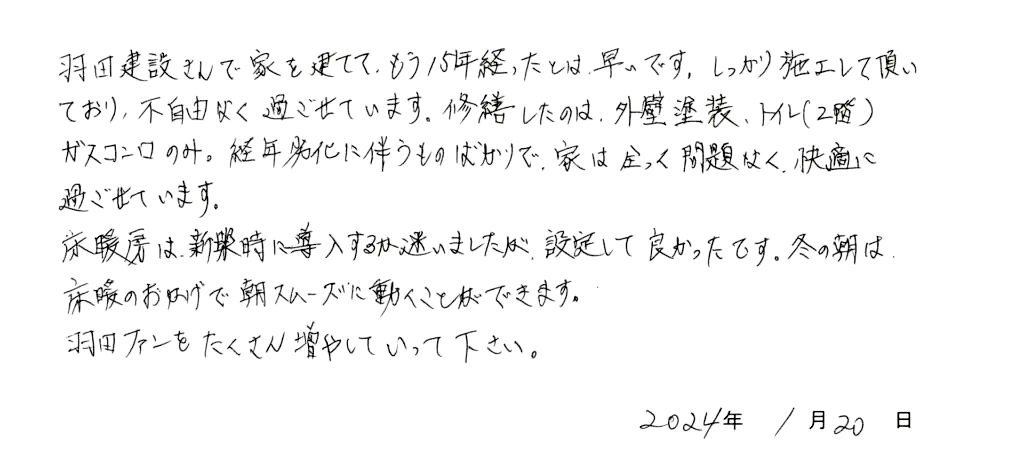 羽田建設さんで家を建てて、もう15年経ったとは、早いです。しっかり施工して頂い
ており、不自由なく過ごせています。修繕したのは、外壁塗装、トイレ(2階)
ガスコンロのみ。経年劣化に伴うものばかりで、家は全く問題なく、快適に
過ごせています。
床暖房は、新築時に導入するか迷いましたが、設定して良かったです。冬の朝は、
床暖のおかげで朝スムーズに動くことができます。
羽田ファンをたくさん増やしていって下さい。
2024年 1月20日